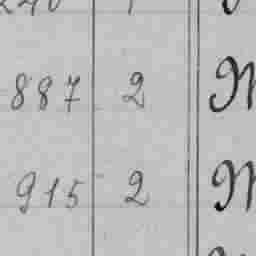 887 2 M
915 2 M